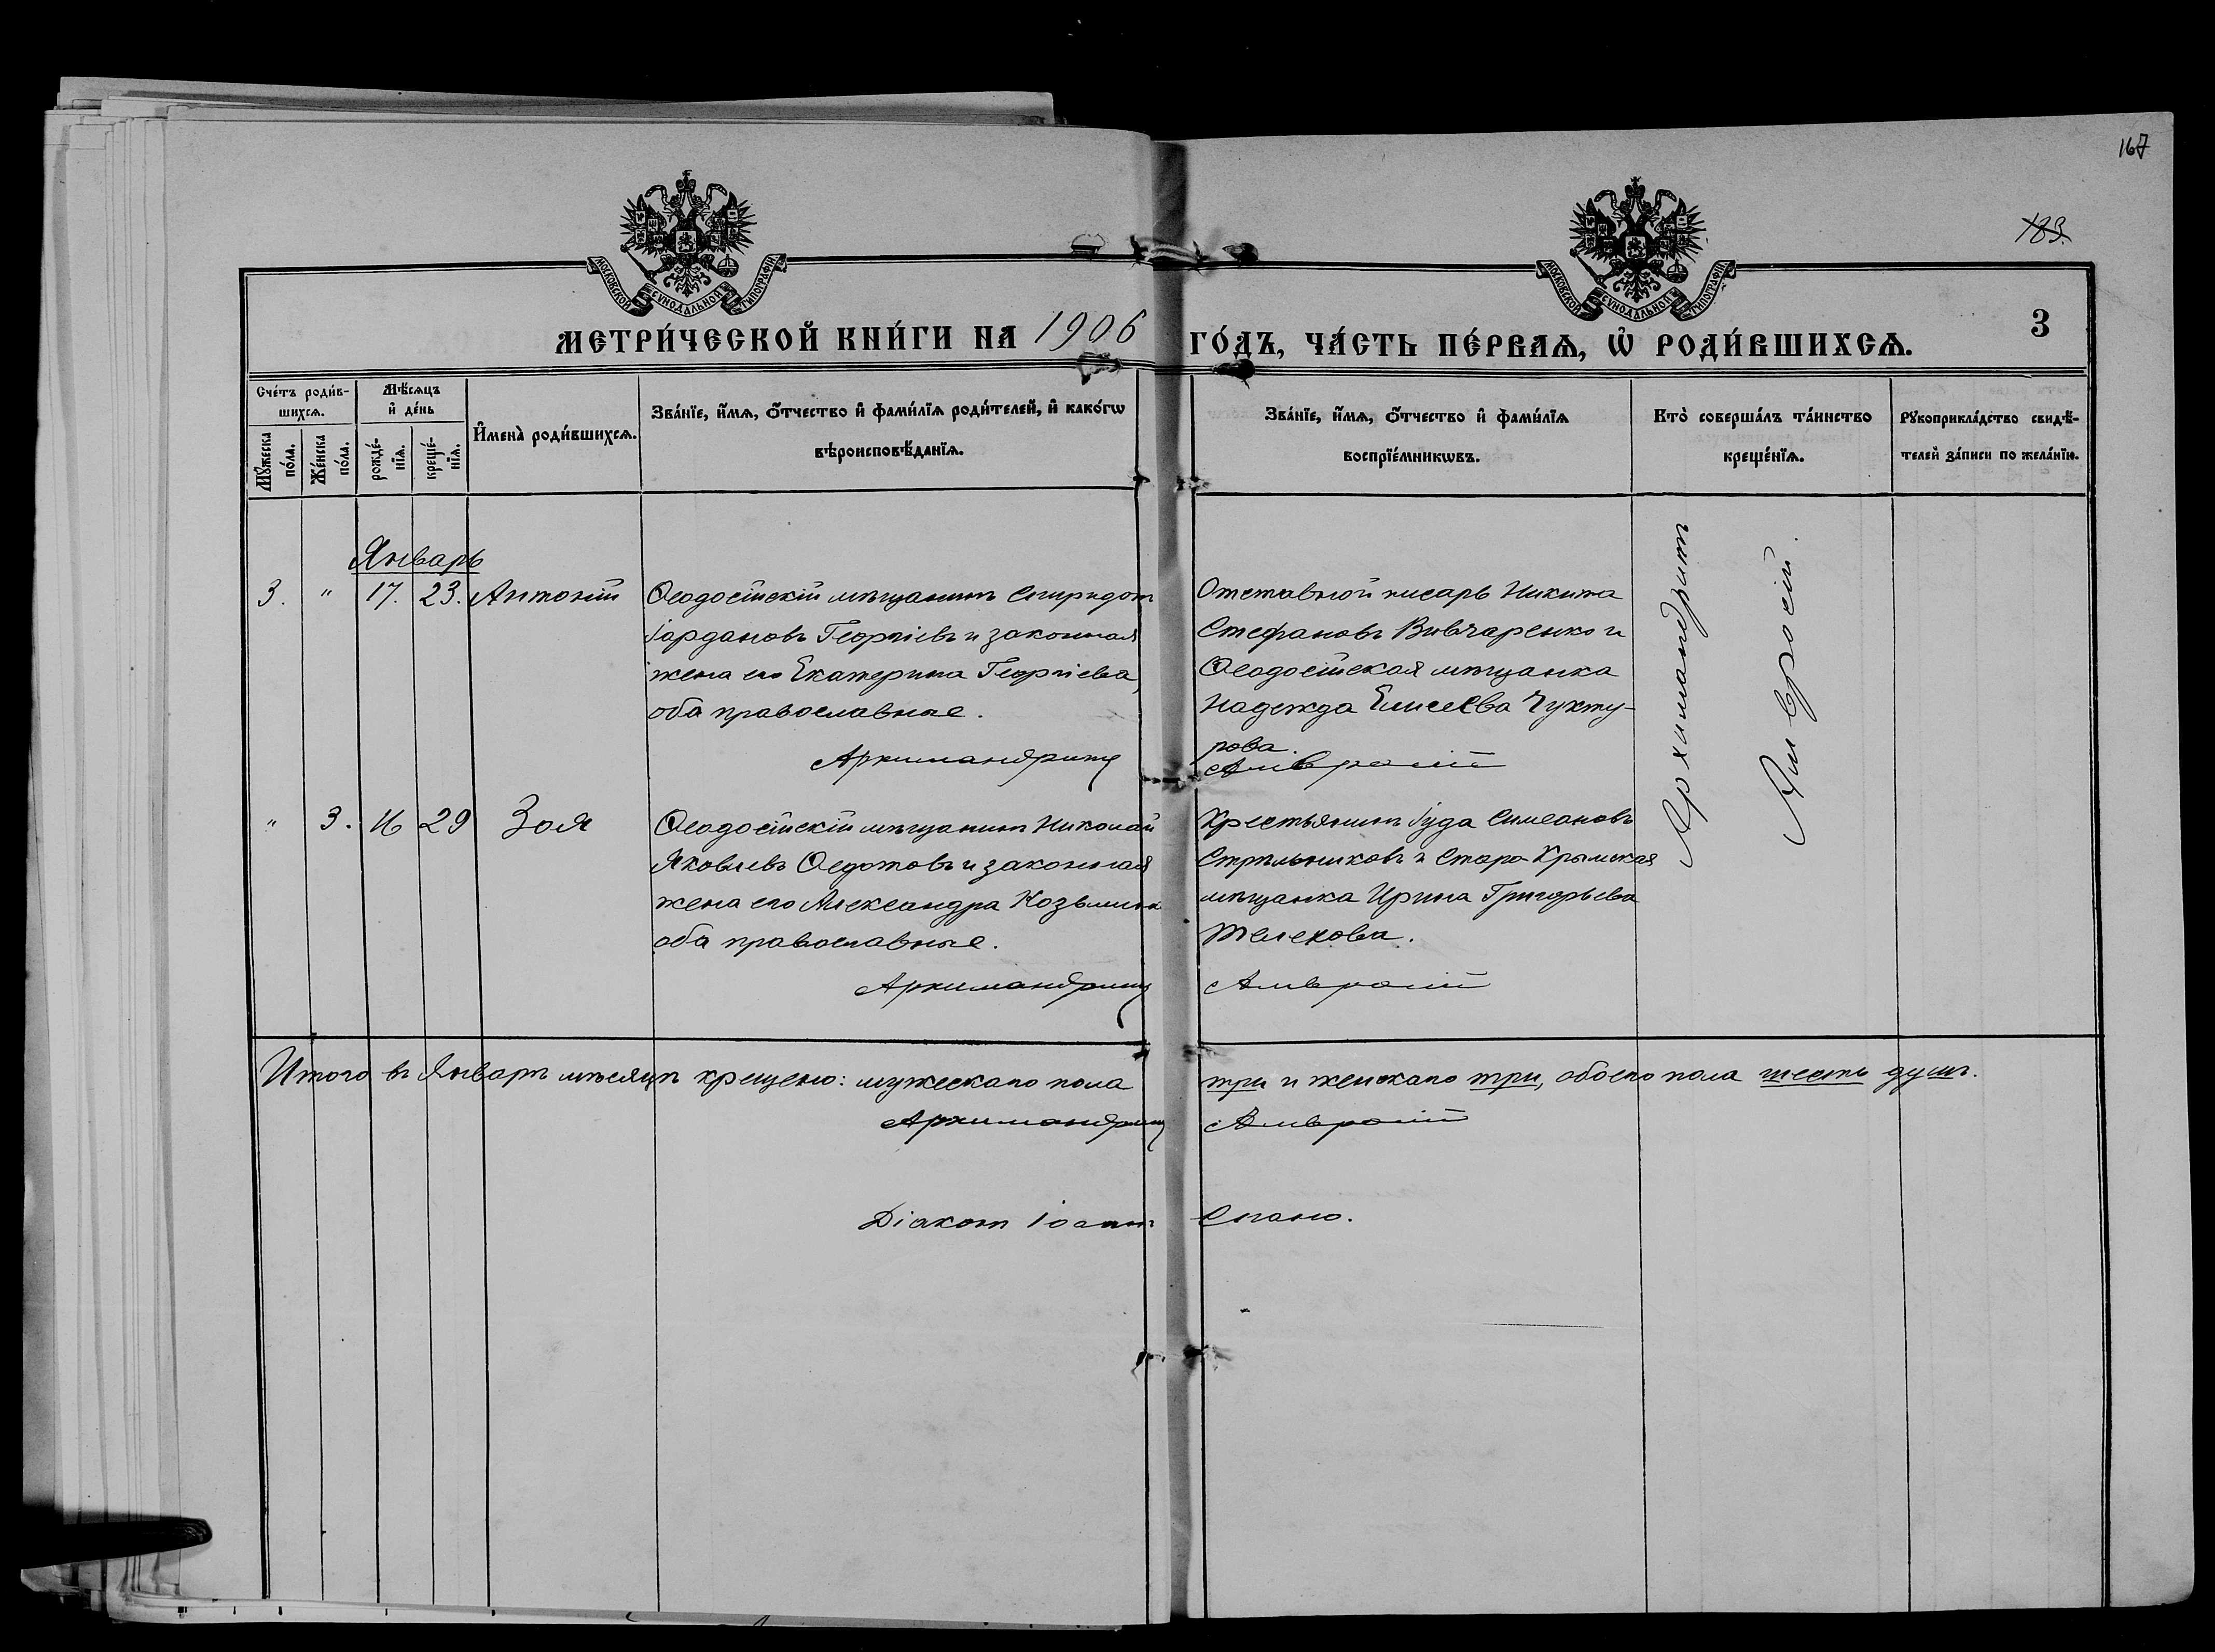 167
183.
МОСКОВСКОЙ СУНОДАЛЬНОЙ ТИПОГРАФІИ
МОСКОВСКОЙ СУНОДАЛЬНОЙ ТИПОГРАФІИ
МЕТРИ́ЧЕСКОЙ КНИ́ГИ НА 1906 ГО́ДЪ, ЧА́СТЬ ПЕ́РВАѦ, Ѡ҆ РОДИ́ВШИХСѦ.
3
Сче́тъ роди́вшихсѧ.
Мꙋ́жеска по́ла.
Же́нска по́ла.
Мѣ́сѧцъ и҆ де́нь
рожде́нїѧ.
креще́нїѧ.
И҆мена̀ роди́вшихсѧ.
Зва́нїе, и҆́мѧ, ѻ҆́тчество и҆ фами́лїѧ роди́телей, и҆ како́гѡ
вѣроисповѣ́данїѧ.
Зва́нїе, и҆́мѧ, ѻ҆́тчество и҆ фами́лїѧ
воспрїе́мникѡвъ.
Кто̀ соверша́лъ та́инство
креще́нїѧ.
Рꙋкоприкла́дство свидѣ́-
телей за́писи по жела́нїю.
Январь
3. " 17. 23. Антоній
Ѳеодосійскій мѣщанинъ Спиридонъ
Іордановъ Георгіевъ и законная
жена его Екатерина Георгіева,
оба православные.
Отставной писарь Никита
Стефановъ Вивчаренко и
Ѳеодосійская мѣщанка
Надежда Елисеева Чухту-
рова.
Архимандритъ Амвросій
Архимандритъ
Амвросій.
" 3. 16 29 Зоя
Ѳеодосійскій мѣщанинъ Николай
Яковлевъ Ѳедотовъ и законная
жена его Александра Козьмина
оба православные.
Крестьянинъ Іуда Симеоновъ
Стрѣльниковъ и Старо-Крымская
мѣщанка Ирина Григорьева
Телехова.
Архимандритъ Амвросій
Итого въ Январѣ мѣсяцѣ крещено: мужескаго пола три и женскаго три, обоего пола шесть душъ.
Архимандритъ Амвросій
Діаконъ Іоаннъ Спано.